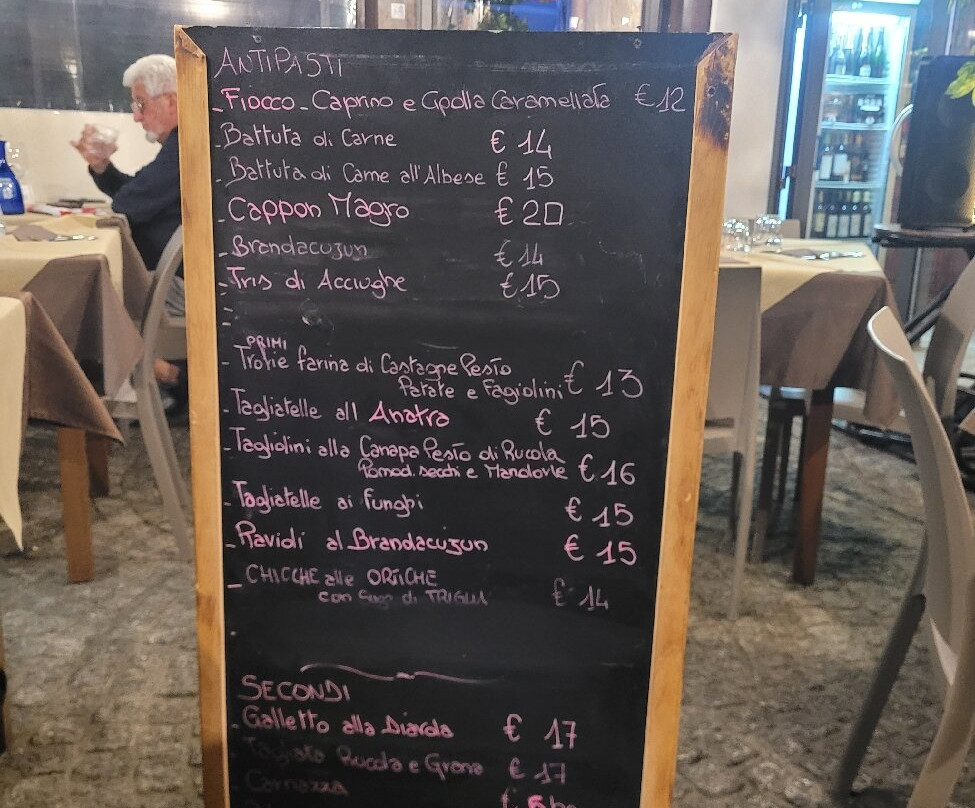 ANTIPASTI
- Fiocco - Caprino e Cipolla Caramellata €12
- Battuta di Carne € 14
- Battuta di Carne all'Albese € 15
- Cappon Magro € 20
- Brandacujun € 14
- Tris di Acciughe € 15
PRIMI
- Trofie farina di Castagne Pesto
Patate e Fagiolini € 13
- Tagliatelle all Anatra € 15
- Tagliolini alla Canapa Pesto di Rucola
Pomod. secchi e Mandorle € 16
- Tagliatelle ai funghi € 15
- Ravioli al Brandacujun € 15
- CHICCHE alle ORTICHE
con Sugo di TRIGLIA € 14
SECONDI
- Galletto alla Diavola € 17
Tagliata Rucola e Grana € 17